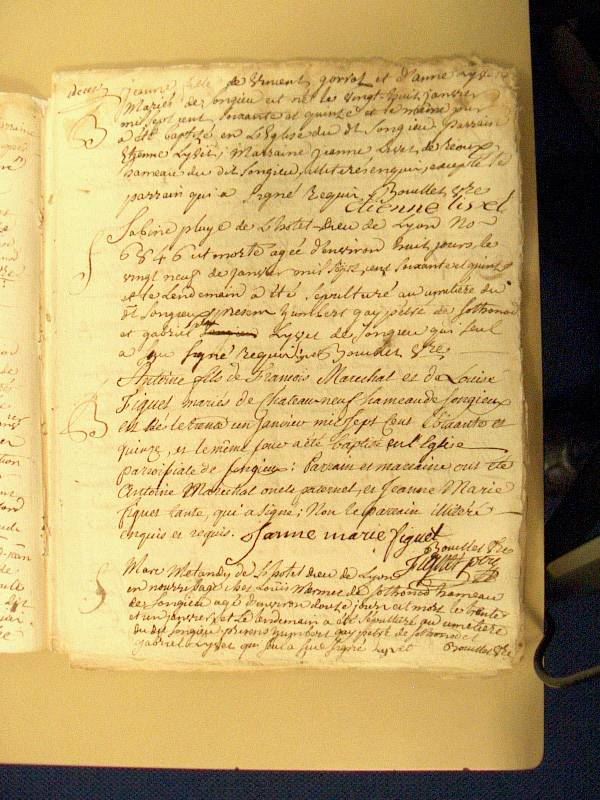 jeanne fille de vincent gorrat et d'anne Lyvet
Mariés de Songieu est née le vingt-huit janvier
mil sept cent soixante et quinze et le même jour
a été baptisée en L'Eglise du dt Songieu Parrain
Etienne Lyvet, Marraine jeanne Livet de
hameau du dit Songieu, illiterés enquis, excepté le
parrain qui a signé Requis Bouillet Vre
Etienne livet
Sabine pluye de L'hotel-Dieu de Lyon No
6846 est morte agée d'environ huit jours le
vingt neuf de janvier mil sept cent soixante et quinze
et le Lendemain a été sepulturé au cimetière du
dt Songieu presens humbert gay petit de Sothonod
et gabriel Lyvet de Songieu qui seul
a Sçu signé Requis Bouillet Vre
B Antoine fils de François Marechal et de Louise
Figuet mariés de Chateau-neuf hameau de Songieux
est né le trente un Janvier mil sept Cent soixante et
quinze, et le même jour a été baptisé en l'Eglise
paroissiale de Songieux: Parrain et marraine ont été
Antoine Marechal oncle paternel, et Jeanne Marie
figuet tante, qui a signé; Non le parrain illiteré
enquis et requis. Janne marie figuet
Bouillet Vre
Marc Metandy de L'hotel dieu de Lyon
en nourrissage chez Louis Mermet de Sothonod hameau
de Songieu agé d'environ douze jours est mort le trente
et un janvier, et Le Lendemain a été sepulturé au cimetiere
du dit Songieu presens humbert gay petit de Sothonod et
gabriel Lyvet qui seul a sçu signé Lyvet Bouillet Vre